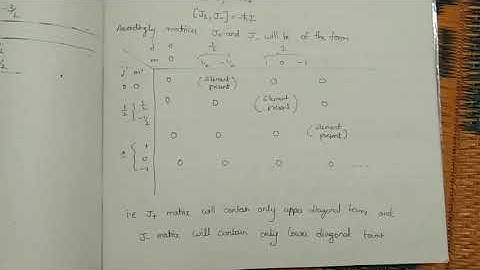 -3/2
[Jz, J-] = -ħI
Accordingly matrices J+ and J- will be of the form
j 0 1/2 1
m 0 1/2 -1/2 1 0 -1
j' m'
0 0 0 (Element present) 0 0
1/2 { 1/2 -1/2 0 0 (Element present) 0
0 0 0 (Element present)
1 { 1 0 -1 0 0 0 0 ....
i.e J+ matrix will contain only upper diagonal terms and
J- matrix will contain only lower diagonal terms